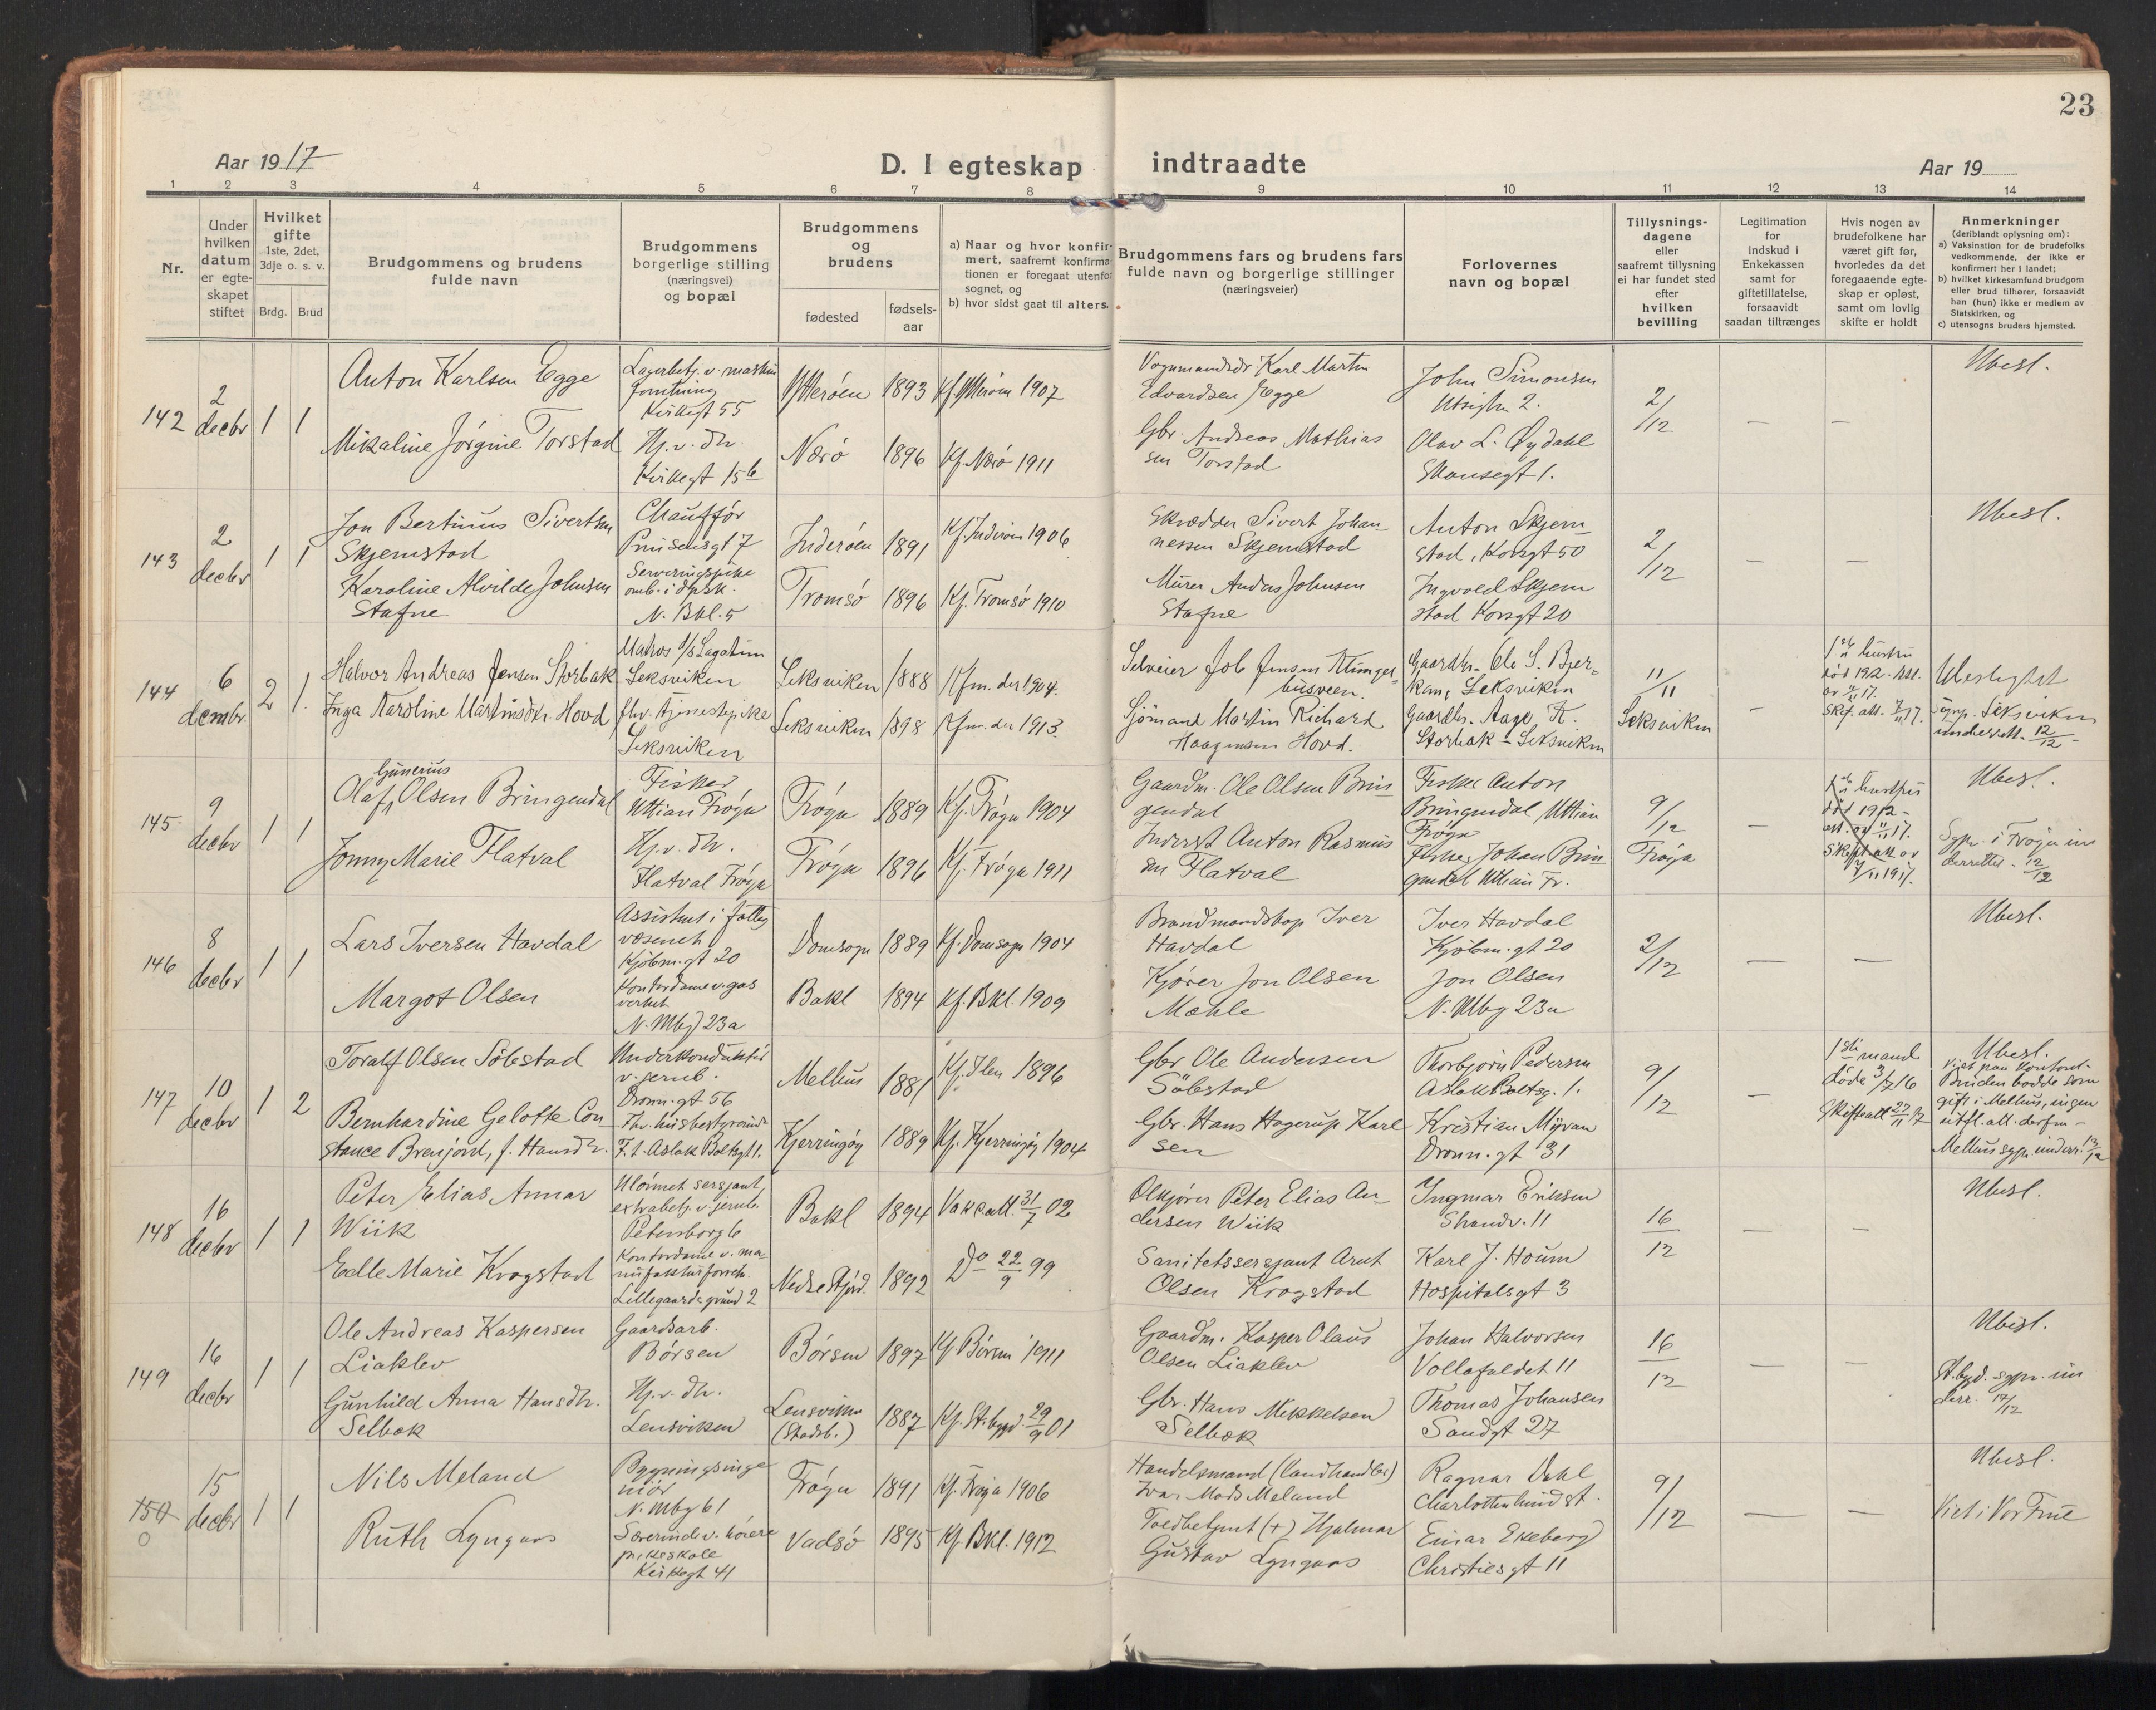 23
Aar 1917 D. I egteskap indtraadte Aar 19
1 2 3 4 5 6 7 8 9 10 11 12 13 14
Nr.
Under hvilken datum er egte-skapet stiftet
Hvilket gifte 1ste, 2det, 3dje o. s. v.
Brdg. Brud
Brudgommens og brudens fulde navn
Brudgommens borgerlige stilling (næringsvei) og bopæl
Brudgommens og brudens
fødested
fødsels-aar
a) Naar og hvor konfir-mert, saafremt konfirma-tionen er foregaat utenfor sognet, og
b) hvor sidst gaat til alters.
Brudgommens fars og brudens fars fulde navn og borgerlige stillinger (næringsveier)
Forlovernes navn og bopæl
Tillysnings-dagene eller saafremt tillysning ei har fundet sted efter hvilken bevilling
Legitimation for indskud i Enkekassen samt for giftetillatelse, forsaavidt saadan tiltrænges
Hvis nogen av brudefolkene har været gift før, hvorledes da det foregaaende egte-skap er opløst, samt om lovlig skifte er holdt
Anmerkninger (deriblandt oplysning om):
a) Vaksination for de brudefolks vedkommende, der ikke er konfirmert her i landet;
b) hvilket kirkesamfund brudgom eller brud tilhører, forsaavidt han (hun) ikke er medlem av Statskirken, og
c) utensogns bruders hjemsted.
142 2 decbr 1 1
Anton Karlsen Egge
Lagerbetj. v. maskin
forretning
Kirkegt 55
Ytterøen 1893 Kf. Ytterøen 1907
Vognmandsdr Karl Martin
Edvardsen Egge
John Simonsen
Utsigten 2.
2/12 — —
Ubesl.
Mikaline Jørgine Torstad
Hj. v. Dr.
Kirkegt 15b
Nærø 1896 Kf. Nærø 1911
Gbr. Andreas Mathias
sen Torstad
Olav L. Øydahl
Skansegt 1.
143 2 decbr 1 1
Jon Bertinus Sivertsen
Skjemstad
Chauffør
Prinsensgt 7
Inderøen 1891 Kf. Inderøen 1906
Skrædder Sivert Johan-
nessen Skjemstad
Anton Skjem
stad, Korsgt 50
2/12 — —
Ubesl.
Karoline Alvilde Johnsen
Stafne
Serveringspike
omb. i dpsk.
N. Bkl. 5
Tromsø 1896 Kf. Tromsø 1910
Murer Anders Johnsen
Stafne
Ingvald Skjem
stad Korsgt 20
144 6 decmbr. 2 1.
Halvor Andreas Jensen Storbak
Matros d/s Lagatun
Leksviken
Leksviken 1888 Kfm. der 1904.
Selveier Job Jensen Klunges-
husveen.
Gaardbr. Ole S. Bjer-
kan, Leksviken
11/11 Leksviken —
1ste hustru
død 1912. Att.
av 11/11 17.
Skif. att. 7/11 17.
Ubeslegtet
Sogpr. Leksviken
underrett. 12/12 -
Inga Karoline Martinsdtr. Hovd
fhv. tjenestepike
Leksviken
Leksviken 1898 Kfm. der 1913.
Sjömand Martin Richard
Haagensen Hovd.
Gaardbr. Aage K.
Storbak - Leksviken
145 9 decbr 1 1
Gunerius
Olaf Olsen Bringendal
Fisker
Uttian Frøya
Frøya 1889 Kf. Frøya 1904
Gaardm. Ole Olsen Brin
gendal
Fisker Anton
Bringendal, Uttian
Frøya
9/12 Frøya —
1ste hustru
død 1912 -
att. av 11/11 17.
Skifteatt av
7/11 1917.
Ubesl.
Sgpr. i Frøya un
derrettet - 12/12
Jonny Marie Flatval
Hj. v. Dr.
Flatval Frøya
Frøya 1896 Kf. Frøya 1911
Inderst Anton Rasmus
sen Flatval
Fisker Johan Brin
gendal Uttian Fr.
146 8 decbr 1 1
Lars Iversen Havdal
Assistent i fattig
væsenet
Kjøbm. gt 20
Domsogn 1889 Kf. Domsogn 1904
Brandmandskap Iver
Havdal
Iver Havdal
Kjøbm. gt 20
2/12 — —
Ubesl.
Margot Olsen
Kontordame v. gas
verket
N. Mbg 23a
Bakl 1894 Kf. Bkl. 1909
Kjører Jon Olsen
Mæhle
Jon Olsen
N. Mbg 23a
147 10 decbr 1 2
Toralf Olsen Söbstad
Underkonduktør
v. jernb.
Dronn. gt 56
Melhus 1881 Kf. Ilen 1896
Gbr Ole Andersen
Söbstad
Thorbjørn Pedersen
Aslak Boltsg. 1.
9/12
1ste mand
døde 3/7 16
Skifteatt 27/11 17
Ubesl.
Viet paa kontoret.
Bruden bodde som
gift i Melhus, ingen
utfl. att. derfra -
Melhus sgpr. underr. 13/12
Bernhardine Gelotte Con
stance Brenjord, f. Hansdtr.
Fhv. husbestyrerinde
F. t. Aslak Boltsgt 1.
Kjerringøy 1889 Kf. Kjerringøy 1904
Gbr. Hans Hagerup Karl
sen
Kristian Myrvan
Dronn. gt 31
148 16 decbr 1 1
Peter Elias Annar
Wiik
Ulönnet sersjant,
extrabetj. v. jernb.
Petersborg 6
Bakl 1894 Vakc. att. 31/7 02
Ølkjører Peter Elias An-
dersen Wiik
Ingmar Eriksen
Strandv. 11
16/12 — —
Ubesl.
Edle Marie Krogstad
Kontordame v. ma-
nufakturforretn.
Lillegaards grund 2
Nedre Stjørd. 1892 Do 22/9 99
Sanitetssersjant Arnt
Olsen Krogstad
Karl J. Houm
Hospitalsgt 3
149 16 decbr 1 1
Ole Andreas Kaspersen
Liaklev
Gaardsarb.
Børsen
Børsen 1897 Kf Børsen 1911
Gaardm. Kasper Olaus
Olsen Liaklev
Johan Halvorsen
Vollafaldet 11
16/12 — —
Ubesl.
St.bygd. sgpr. un
derr. 17/12
Gunhild Anna Hansdtr.
Selbæk
Hj. v. Dr.
Lensviken
Lensviken
(Stadsb.) 1887 Kf. St.bygd. 29/9 01
Gbr. Hans Mikkelsen
Selbæk
Thomas Johansen
Sandgt 27
150 15 decbr 1 1
0
Nils Meland
Bygningsinge
niør
N. Mbg 61
Frøya 1891 Kf. Frøya 1906
Handelsmand (Landhandler)
Ivar Mads Meland
Ragnar Dahl
Charlottenlund st.
9/12 — —
Ubesl.
Viet i Vor Frue
Ruth Lyngaas
Lærerinde v. høiere
pikeskole
Kirkegt 41
Vadsø 1895 Kf. Bkl. 1912
Toldbetjent (+) Hjalmar
Gustav Lyngaas
Einar Ekeberg
Christiesgt 11